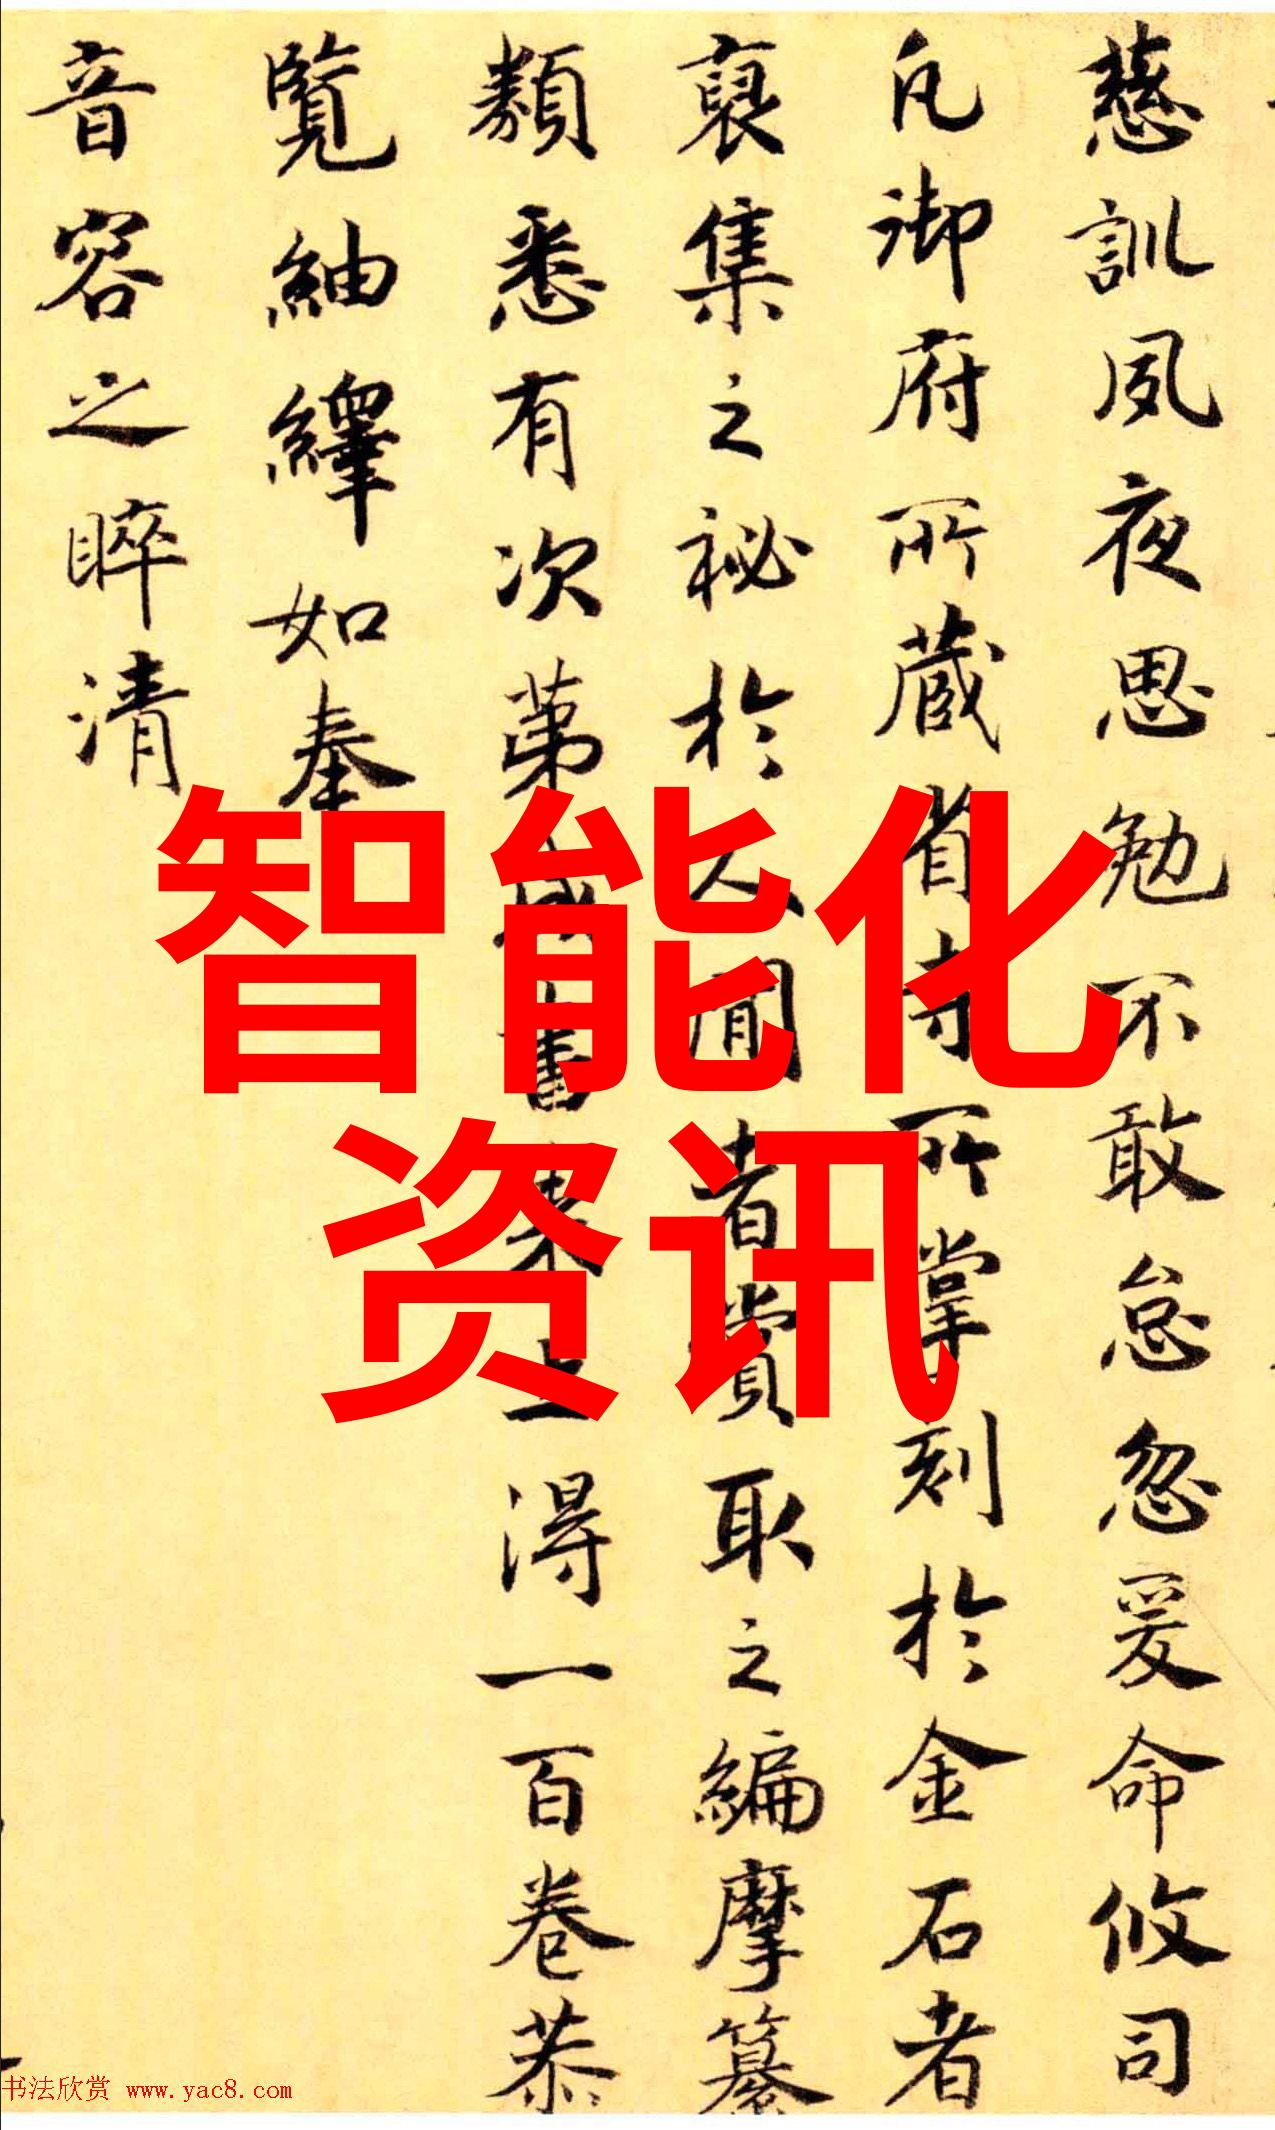 慈訓夙夜思勉不敢怠忽爰命攸司
凡御府所藏省寺所掌刻於金石者
裒集之祕於人間者賞取之編摩纂
類悉有次第成書来上得一百卷恭
覽紬繹如奉
音容之睟清
智能化
资讯
书法欣赏 www.yac8.com